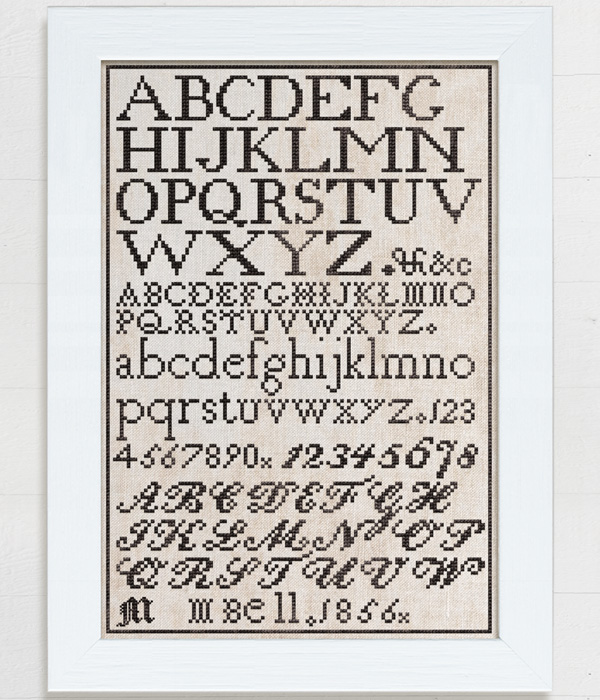 ABCDEFG
HIJKLMN
OPQRSTUV
WXYZ. &c
ABCDEFGHIJKLMNO
PQRSTUVWXYZ.
abcdefghijklmno
pqrstuvwxyz.123
4567890x 12345678
ABCDEFGH
IKLMNOP
QRSTUVW
M M BC ll.1856x